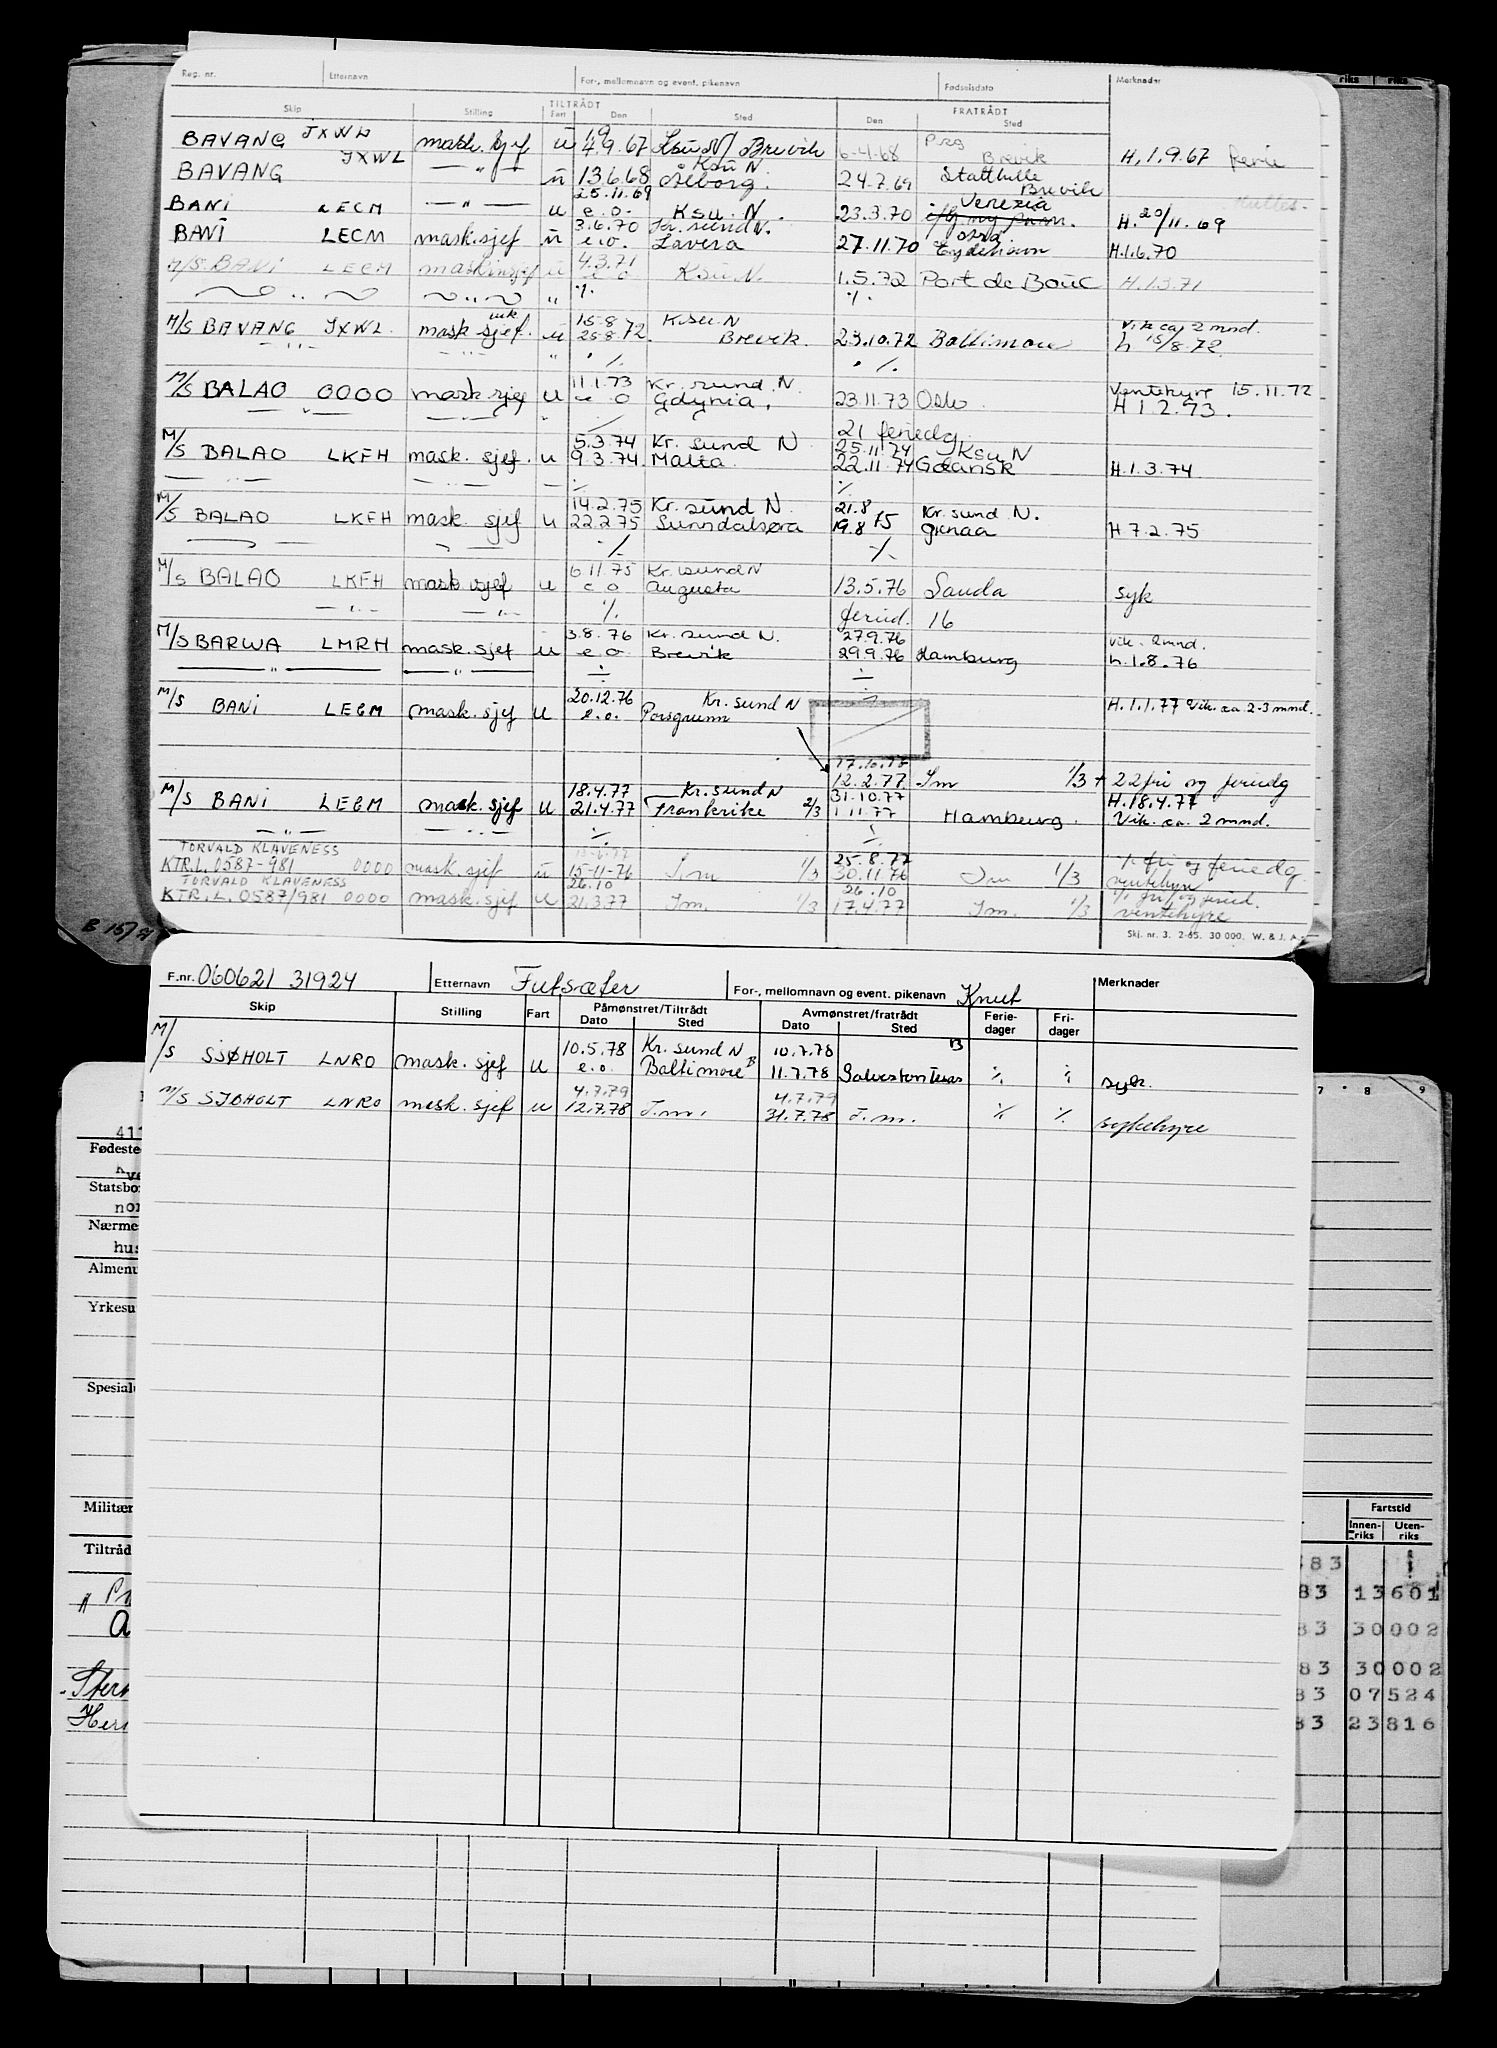 Reg. nr. Etternavn For-, mellomnavn og event. pikenavn Fødselsdato Merknader
TILTRÅDT FRATRÅDT
Skip Stilling Fart Den Sted Den Sted
BAVANG JXWL mask. sjef u 1.9 4.9.67 Ksu N/ Brevik 6.4.68 Prg Brevik H. 1.9.67 ferie
BAVANG JXWL — " — u 13.6.68 Ksu N Ålborg. 24.7.69 Stathelle Brevik
BANI LECM — " — u 25.11.69 e.o. Ksu. N. 23.3.70 Venezia H. 20/11.69
BANI LECM mask.sjef u 3.6.70 e.o. Kr.sund N. Lavera 27.11.70 Eydehavn H.1.6.70
M/S BANI LECM maskinsjef u 4.3.71 e o Ksu N. 1.5.72 Port de Bouc H. 1.3.71
" " " ٪ ٪
M/S BAVANG JXWL. mask sjef. vik. u 15.8 25.8.72. K.su. N Brevik. 23.10.72 Baltimore Vik ca 2 mnd. h 15/8.72.
M/S BALAO 0000 mask sjef u 11.1.73 e o Kr. sund N. Gdynia, 23.11.73 Oslo. Ventehyre 15.11.72 H 1 2.73.
21 feriedg
M/S BALAO LKFH mask. sjef. u 5.3.74 9.3.74 Kr. sund N Malta. 25.11.74 22.11.74 Ksu N Gdansk H.1.3.74
M/S BALAO LKFH mask. sjef u 14.2.75 22.2.75 Kr. sund N. Sunndalsøra 21.8 19.8 75 Kr. sund N. H 7.2.75
M/S BALAO LKFH mask sjef u 6.11.75 e o Kr.sund N Augusta 13.5.76 Sauda syk
feried. 16
M/S BARWA LMRH mask. sjef u 3.8.76 e o Kr. sund N. Brevik 27.9.76 29.9.76 Hamburg vik. 2mnd. h.1.8.76
M/S BANI LECM mask. sjef u 20.12.76 e.o. Kr. sund N Porsgrunn H.1.1.77 Vik. ca. 2-3 mnd.
12.2.77 Im 1/3 + 22 fri og feriedg
M/S BANI LECM mask. sjef u 18.4.77 21.4.77 Kr. sund N Frankrike 2/3 31.10.77 1.11.77 Hamburg. H.18.4.77 Vik. ca. 2 mnd.
TORVALD KLAVENESS
KTR.L. 0587-981 0000 mask sjef u 15-11-76 I.m 1/3 25.8.77 30.11.76 Im 1/3 ٪ fri og feriedg. ventehyre
TORVALD KLAVENESS
KTR.L. 0587/981 0000 mask. sjef u 26.10 21.3.77 Im. 1/3 26.10 17.4.77 Im. 1/3 ventehyre
B 15/
Skj. nr. 3. 2-65. 30 000. W. & J. A.
F.nr. 060621 31924 Etternavn Futsæter For-, mellomnavn og event. pikenavn Knut Merknader
Skip Stilling Fart Påmønstret/Tiltrådt Avmønstret/fratrådt Ferie-dager Fri-dager
Dato Sted Dato Sted
M/S SJØHOLT LNRO mask. sjef u 10.5.78 e.o. Kr. sund N Baltimore B 10.7.78 11.7.78 Galveston Texas B ٪ ٪ syk.
M/S SJØHOLT LNRO mask. sjef u 4.7.79 12.7.78 I.m. 4.7.79 31.7.78 I.m. ٪ ٪ sykehyre
411
Fødeste
Statsbo
nor
Nærme
hus
Almenu
Yrkesu
Spesial
Militær
Tiltråd
7 8 9
Fartstid
Innen-riks Uten-riks
83
83 13601
83 30002
83 30002
83 07524
83 23816